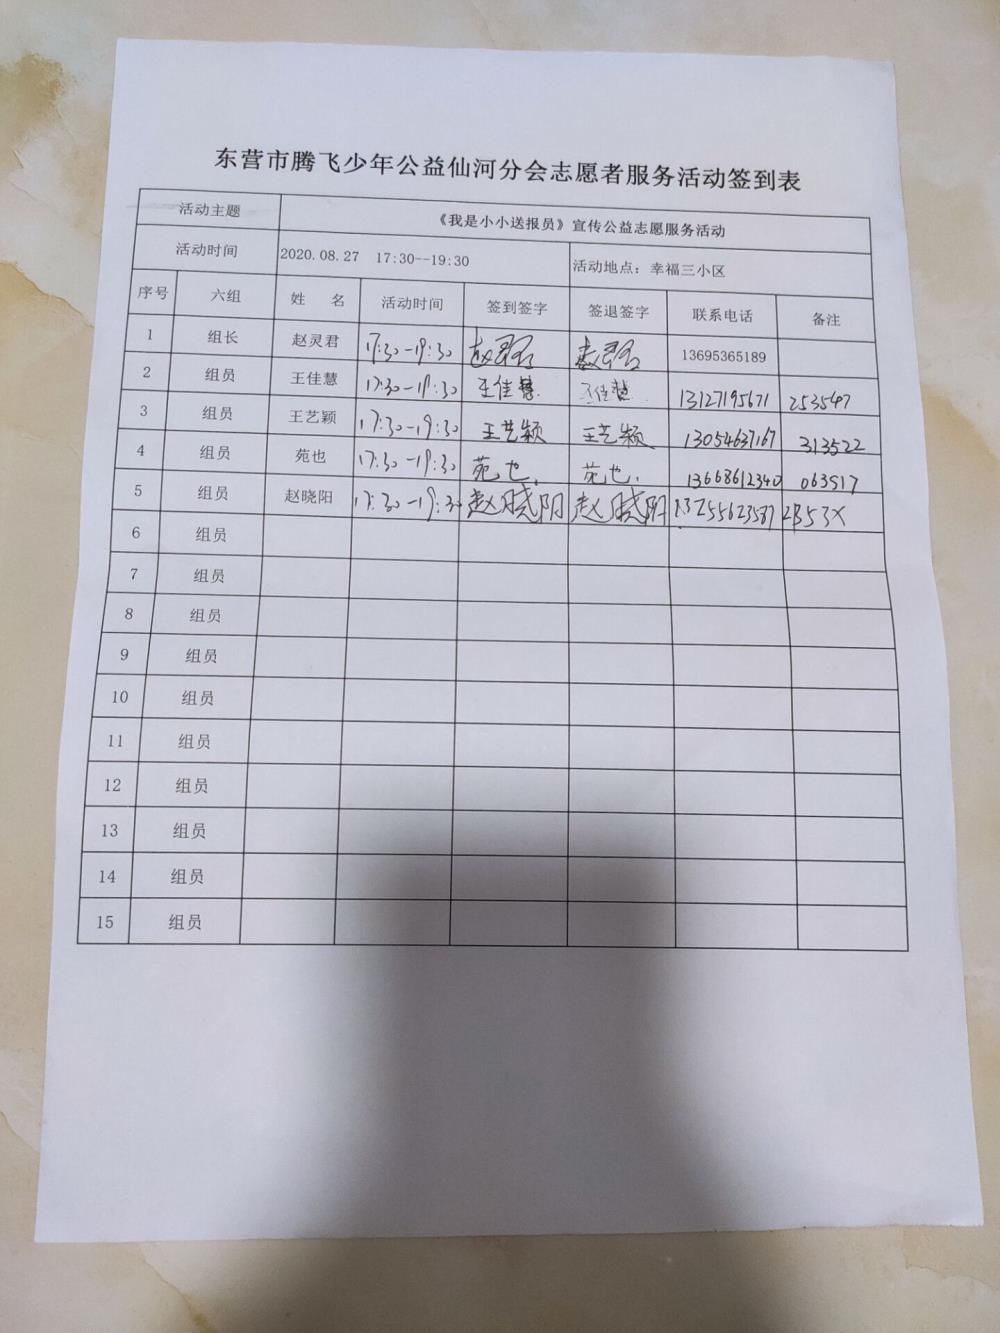 东营市腾飞少年公益仙河分会志愿者服务活动签到表
活动主题 《我是小小送报员》宣传公益志愿服务活动
活动时间 2020.08.27 17:30--19:30 活动地点：幸福三小区
序号 六组 姓 名 活动时间 签到签字 签退签字 联系电话 备注
1 组长 赵灵君 17:30-19:30 赵灵君 赵灵君 13695365189
2 组员 王佳慧 17:30-19:30 王佳慧 王佳慧 13127195671 253547
3 组员 王艺颖 17:30-19:30 王艺颖 王艺颖 13054637167 313522
4 组员 苑也 17:30-19:30 苑也. 苑也. 13668612340 063517
5 组员 赵晓阳 17:30-19:30 赵晓阳 赵晓阳 13255623587
6 组员
7 组员
8 组员
9 组员
10 组员
11 组员
12 组员
13 组员
14 组员
15 组员